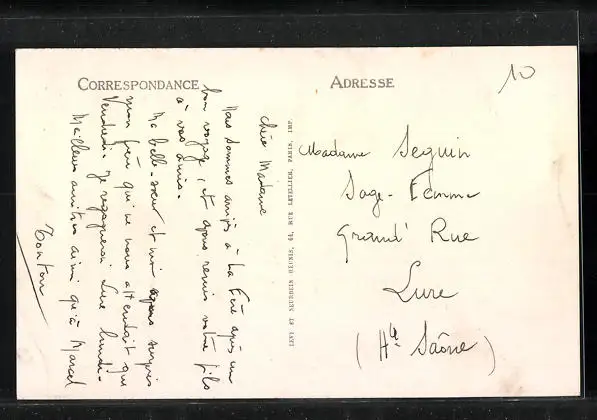 CORRESPONDANCE
Chère Madame
Nous sommes arrivés à La Fère après un
bon voyage, et avons remis votre fils
à vos amis.
Ma belle-sœur et moi avons surpris
mon frère qui ne nous attendait que
Vendredi. Je regagnerai Lure lundi.
Meilleures amitiés ainsi qu'à Marcel
LEVY ET NEURDEIN REUNIS, 44, RUE LETELLIER, PARIS, IMP.
ADRESSE
10
Madame Seguin
Sage-Femme
Grand' Rue
Lure
(Hte Saône)